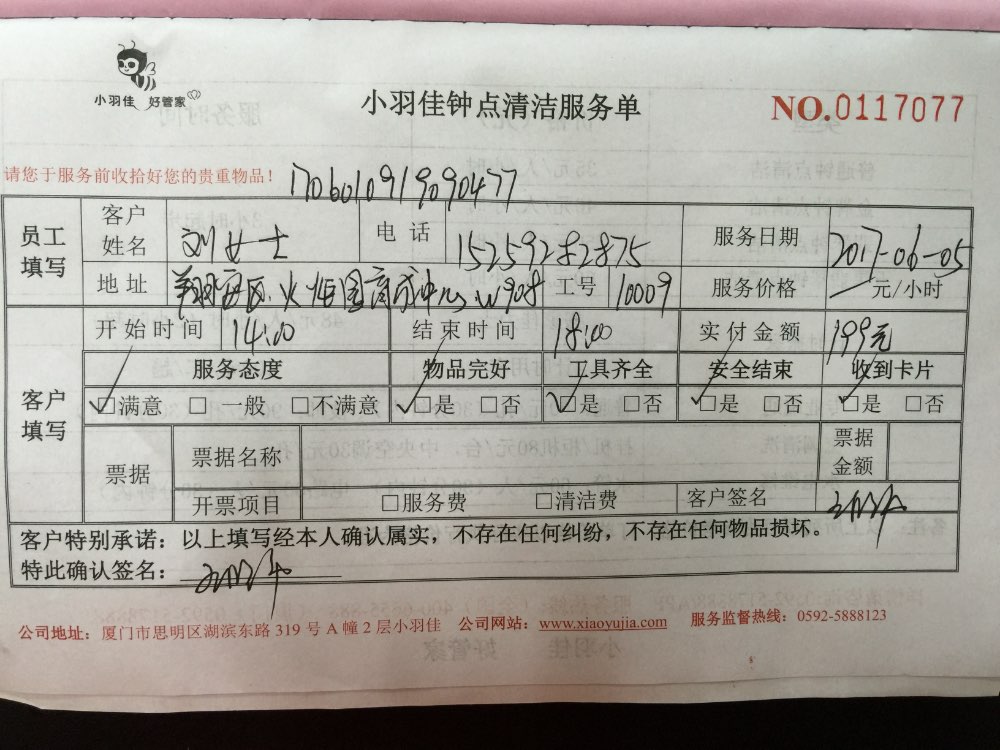 小羽佳 好管家
小羽佳钟点清洁服务单
NO.0117077
请您于服务前收拾好您的贵重物品！ 1706010919090477
员工填写 客户姓名 刘女士 电话 15259282875 服务日期 2017-06-05
地址 翔安区火炬园商城中心W908 工号 10009 服务价格 元/小时
客户填写 开始时间 14:00 结束时间 18:00 实付金额 199元
服务态度 物品完好 工具齐全 安全结束 收到卡片
☑满意 □一般 □不满意 ☑是 □否 ☑是 □否 ☑是 □否 ☑是 □否
票据 票据名称 票据金额
开票项目 □服务费 □清洁费 客户签名
客户特别承诺：以上填写经本人确认属实，不存在任何纠纷，不存在任何物品损坏。
特此确认签名：
公司地址：厦门市思明区湖滨东路 319 号 A 幢 2 层小羽佳 公司网站：www.xiaoyujia.com 服务监督热线：0592-5888123